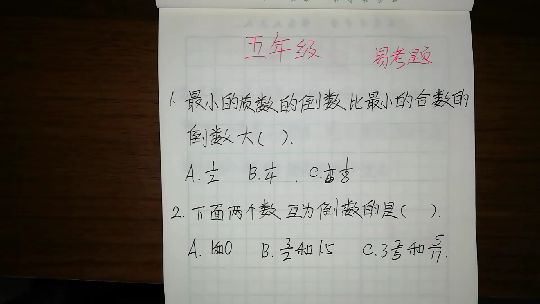 五年级 易考题
1. 最小的质数的倒数比最小的合数的
倒数大( ).
A. 1/2 B. 1/4 C. 1/8
2. 下面两个数互为倒数的是( ).
A. 1和0 B. 3/2和1.5 C. 3 2/5和5/17.